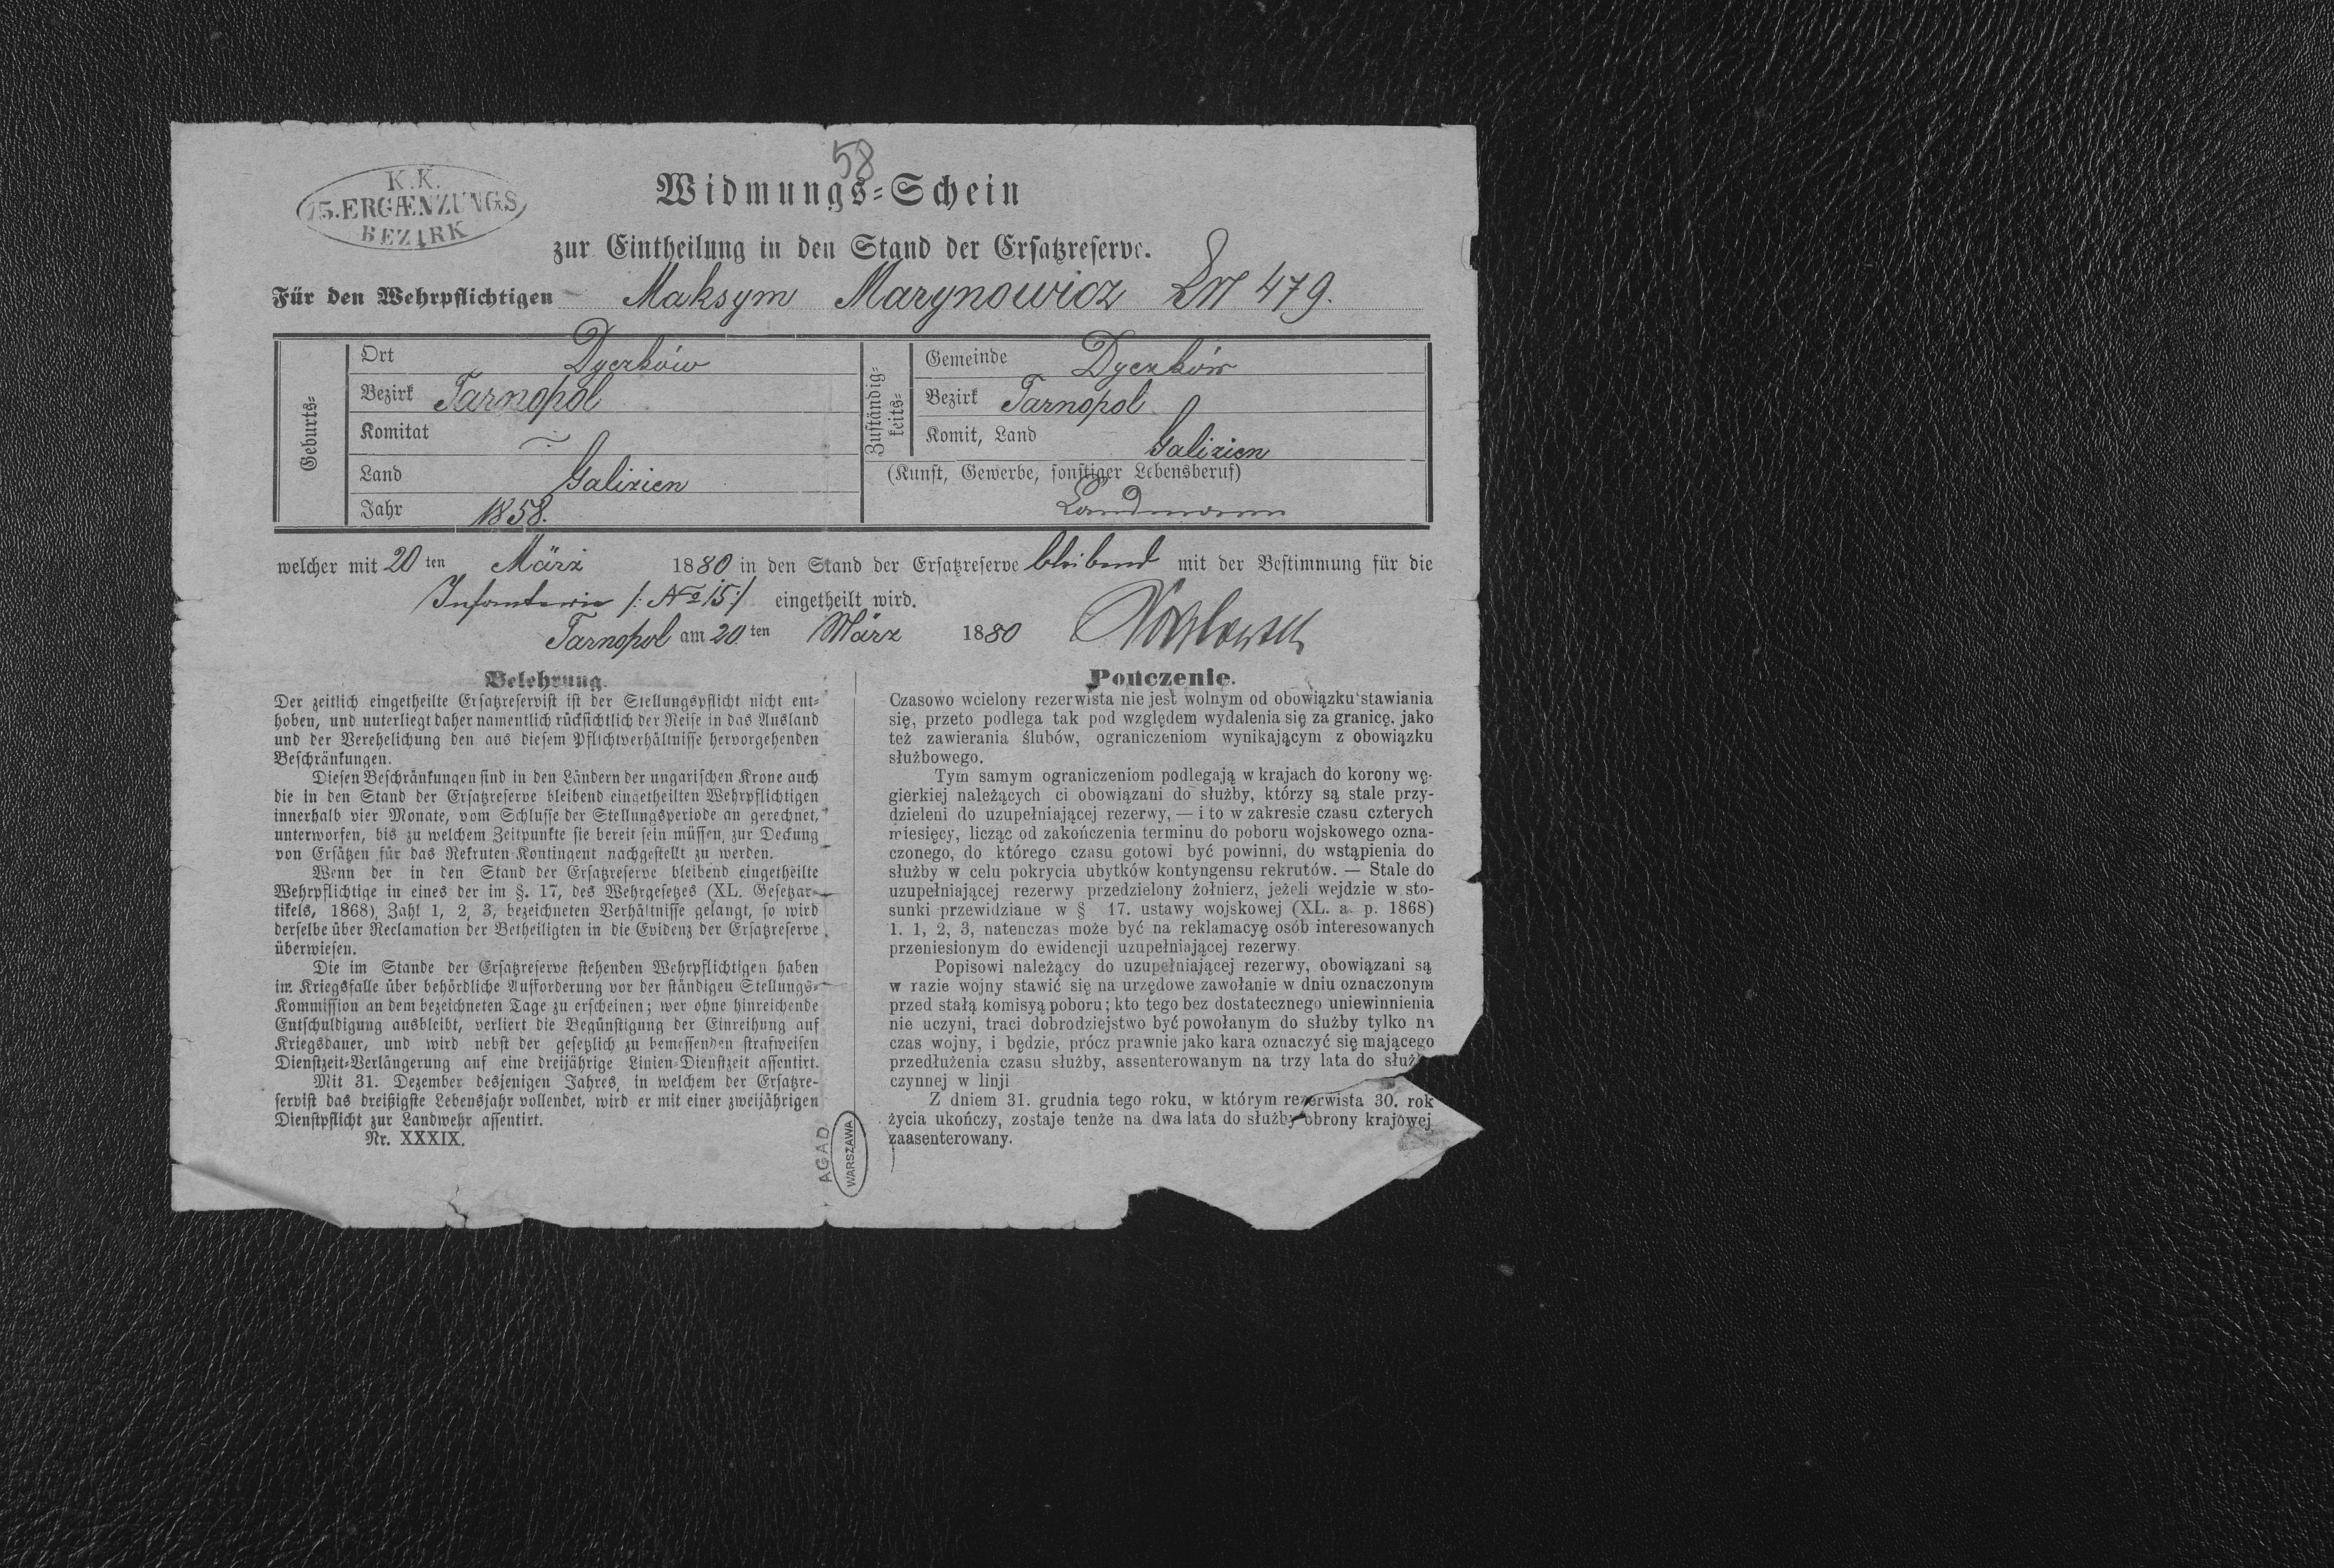 58
K.K.
15. ERGÆNZUNGS
BEZIRK
Widmungs-Schein
zur Eintheilung in den Stand der Ersatzreserve.
Für den Wehrpflichtigen Maksym Marynowicz 479.
Geburts-
Ort Dyczków
Bezirk Tarnopol
Komitat —
Land Galizien
Jahr 1858.
Zuständig-
keits-
Gemeinde Dyczków
Bezirk Tarnopol
Komit, Land Galizien
(Kunst, Gewerbe, sonstiger Lebensberuf)
Landmann
welcher mit 20 ten März 1880 in den Stand der Ersatzreserve bleibend mit der Bestimmung für die
Infanterie /: No 15 :/ eingetheilt wird.
Tarnopol am 20 ten März 1880
Belehrung.
Der zeitlich eingetheilte Ersatzreservist ist der Stellungspflicht nicht ent-
hoben, und unterliegt daher namentlich rücksichtlich der Reise in das Ausland
und der Verehelichung den aus diesem Pflichtverhältnisse hervorgehenden
Beschränkungen.
Diesen Beschränkungen sind in den Ländern der ungarischen Krone auch
die in den Stand der Ersatzreserve bleibend eingetheilten Wehrpflichtigen
innerhalb vier Monate, vom Schlusse der Stellungsperiode an gerechnet,
unterworfen, bis zu welchem Zeitpunkte sie bereit sein müssen, zur Deckung
von Ersätzen für das Rekruten-Kontingent nachgestellt zu werden.
Wenn der in den Stand der Ersatzreserve bleibend eingetheilte
Wehrpflichtige in eines der im §. 17, des Wehrgesetzes (XL. Gesetzar-
tikels, 1868), Zahl 1, 2, 3, bezeichneten Verhältnisse gelangt, so wird
derselbe über Reclamation der Betheiligten in die Evidenz der Ersatzreserve
überwiesen.
Die im Stande der Ersatzreserve stehenden Wehrpflichtigen haben
im Kriegsfalle über behördliche Aufforderung vor der ständigen Stellungs-
Kommission an dem bezeichneten Tage zu erscheinen; wer ohne hinreichende
Entschuldigung ausbleibt, verliert die Begünstigung der Einreihung auf
Kriegsdauer, und wird nebst der gesetzlich zu bemessenden strafweisen
Dienstzeit-Verlängerung auf eine dreijährige Linien-Dienstzeit assentirt.
Mit 31. Dezember desjenigen Jahres, in welchem der Ersatzre-
servist das dreißigste Lebensjahr vollendet, wird er mit einer zweijährigen
Dienstpflicht zur Landwehr assentirt.
Nr. XXXIX.
Pouczenie.
Czasowo wcielony rezerwista nie jest wolnym od obowiązku stawiania
się, przeto podlega tak pod względem wydalenia się za granicę, jako
też zawierania ślubów, ograniczeniom wynikającym z obowiązku
służbowego.
Tym samym ograniczeniom podlegają w krajach do korony wę-
gierkiej należących ci obowiązani do służby, którzy są stale przy-
dzieleni do uzupełniającej rezerwy, — i to w zakresie czasu czterech
miesięcy, licząc od zakończenia terminu do poboru wojskowego ozna-
czonego, do którego czasu gotowi być powinni, do wstąpienia do
służby w celu pokrycia ubytków kontyngensu rekrutów. — Stale do
uzupełniającej rezerwy przedzielony żołnierz, jeżeli wejdzie w sto-
sunki przewidziane w § 17. ustawy wojskowej (XL. a. p. 1868)
l. 1, 2, 3, natenczas może być na reklamacyę osób interesowanych
przeniesionym do ewidencji uzupełniającej rezerwy.
Popisowi należący do uzupełniającej rezerwy, obowiązani są
w razie wojny stawić się na urzędowe zawołanie w dniu oznaczonym
przed stałą komisyą poboru; kto tego bez dostatecznego uniewinnienia
nie uczyni, traci dobrodziejstwo być powołanym do służby tylko na
czas wojny, i będzie, prócz prawnie jako kara oznaczyć się mającego
przedłużenia czasu służby, assenterowanym na trzy lata do służb
czynnej w linji
Z dniem 31. grudnia tego roku, w którym rezerwista 30. rok
życia ukończy, zostaje tenże na dwa lata do służby obrony krajowej
zaasenterowany.
AGAD
WARSZAWA